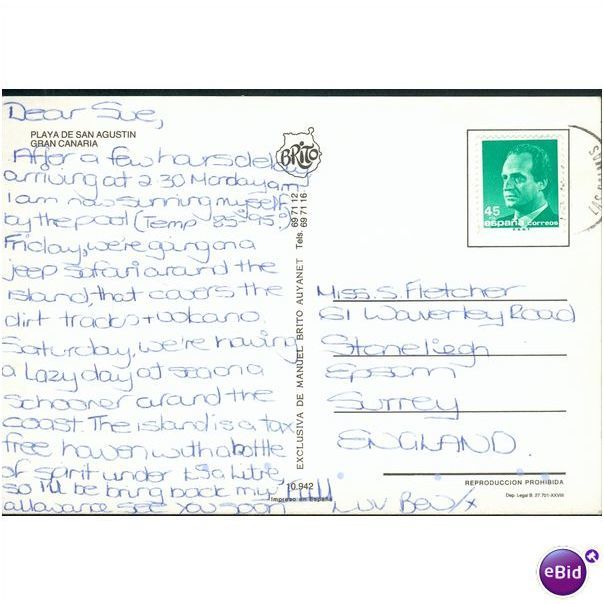 Dear Sue,
PLAYA DE SAN AGUSTIN
GRAN CANARIA
After a few hours delay
arriving at 2.30 Monday am
I am now sunning myself
by the pool (Temp 85-95°)
Friday, we're going on a
jeep safari around the
island, that covers the
dirt tracks + volcano.
Saturday, we're having
a lazy day at sea on a
schooner around the
coast. The island is a tax
free haven with a bottle
of spirit under litre,
so I'll be bring back my
allowance see you soon
!!!!!
Luv Bev/x
BRITO
EXCLUSIVA DE MANUEL BRITO AUYANET
Tels. 69 71 12
69 71 16
10.942
Impreso en España
45
españa correos
LAS PALMAS
Miss. S. Fletcher
61 Waverley Road
Stoneliegh
Epsom
Surrey
ENGLAND.
REPRODUCCION PROHIBIDA
Dep. Legal B. 27.701-XXVIII
eBid